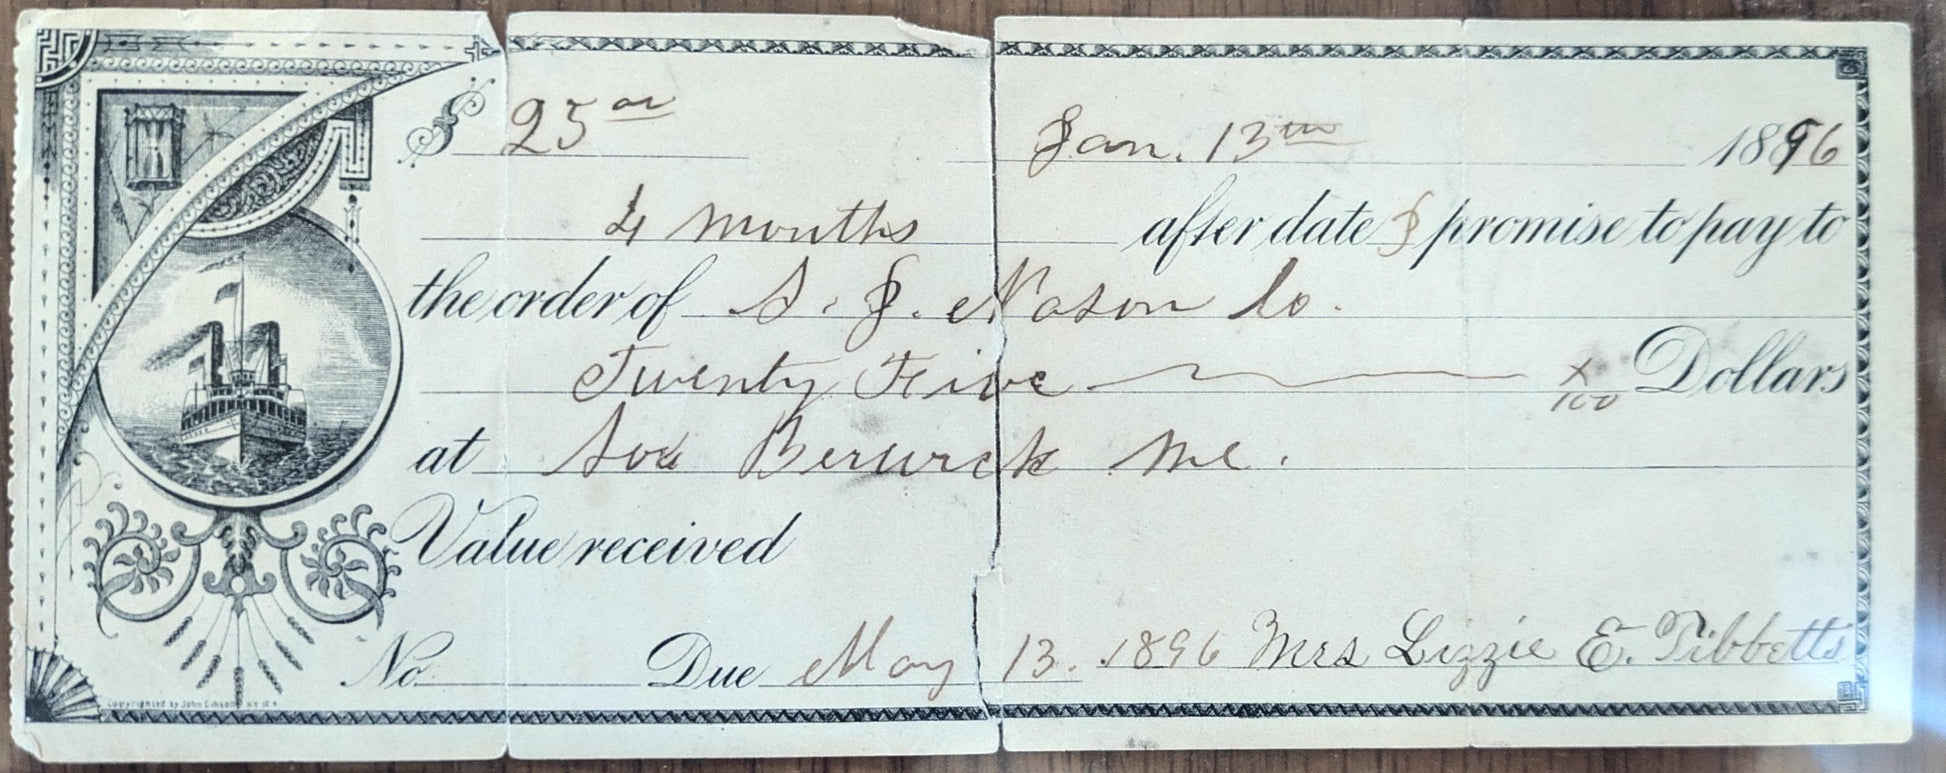 $ 25 00 Jan. 13th 1896
4 months after date I promise to pay to
the order of S. J. Nason Co.
Twenty Five x/100 Dollars
at Sou Berwick Me.
Value received
No. Due May 13. 1896 Mrs Lizzie E. Tibbetts
Copyrighted by John Gibson